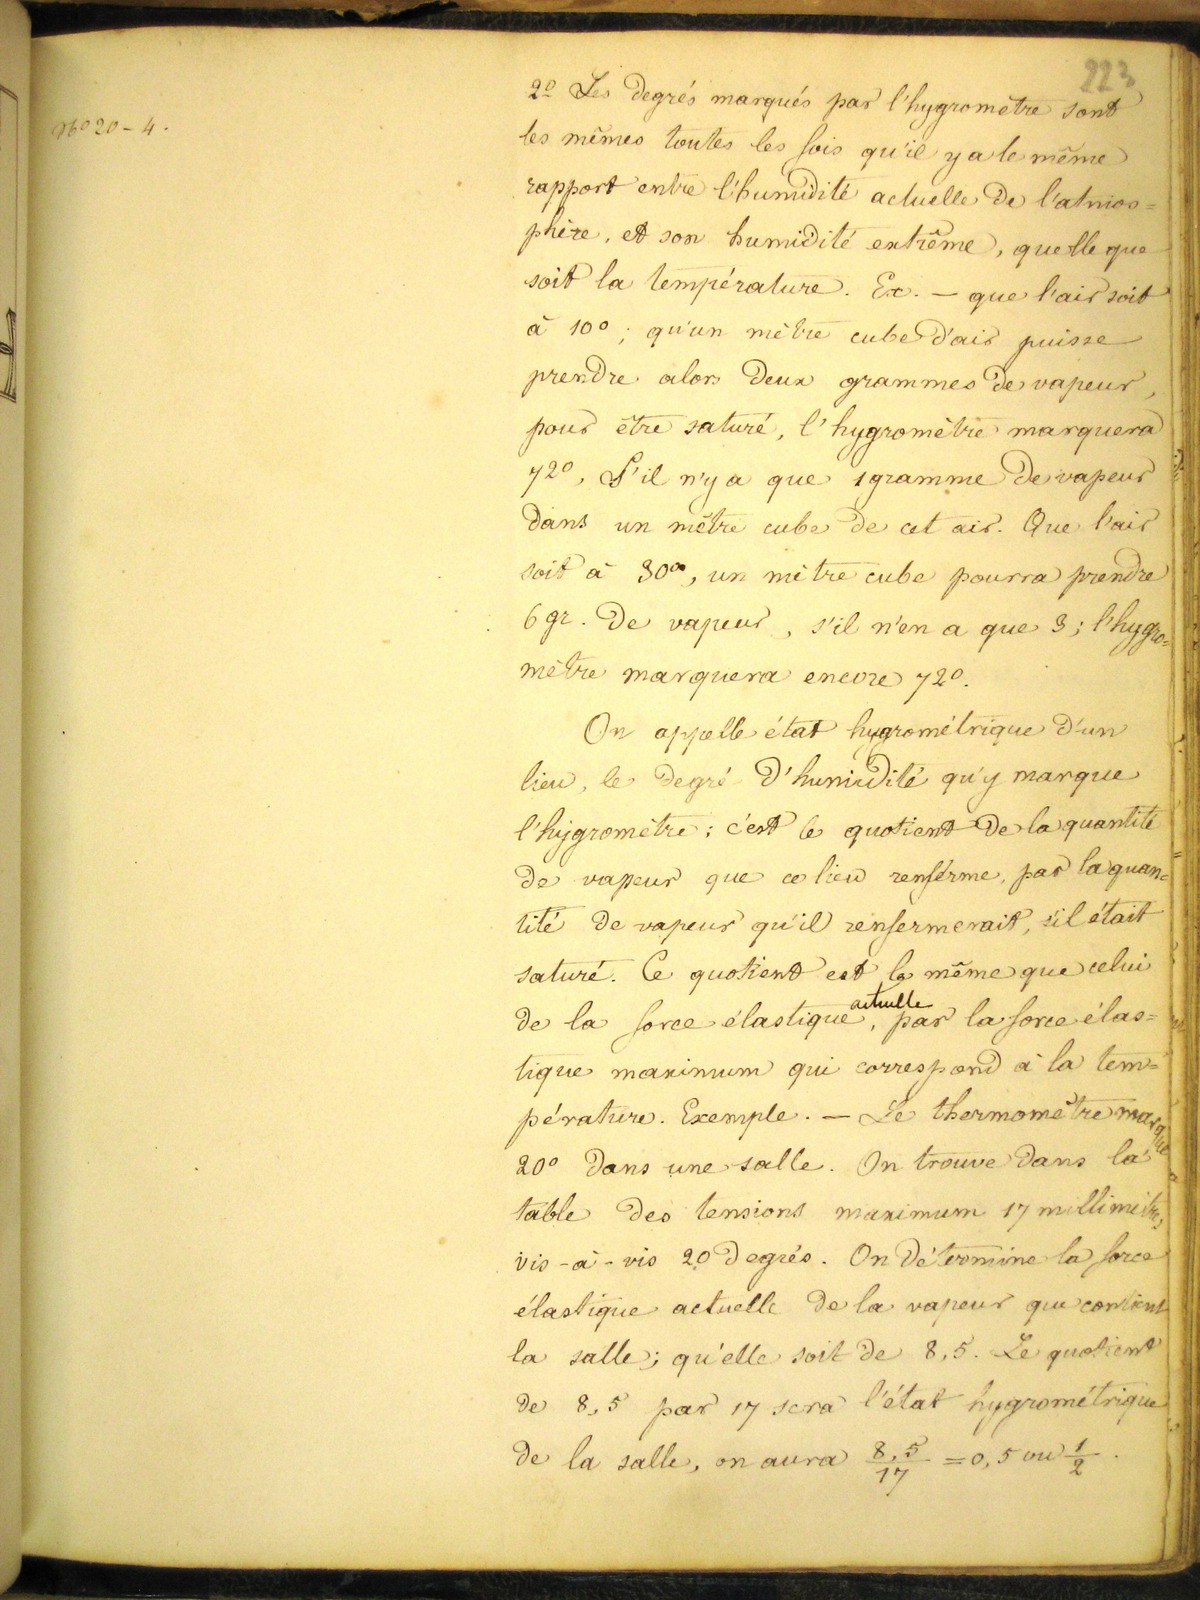 223
No 20 - 4.
2o Les degrés marqués par l'hygromètre sont
les mêmes toutes les fois qu'il y a le même
rapport entre l'humidité actuelle de l'atmos=
phère, et son humidité extrême, quelle que
soit la température. Ex. — que l'air soit
à 10o ; qu'un mètre cube d'air puisse
prendre alors deux grammes de vapeur,
pour être saturé, l'hygromètre marquera
72o, S'il n'y a que 1 gramme de vapeur
dans un mètre cube de cet air. Que l'air
soit à 30o, un mètre cube pourra prendre
6 gr. de vapeur, s'il n'en a que 3 ; l'hygro=
mètre marquera encore 72o.
On appelle état hygrométrique d'un
lieu, le degré d'humidité qu'y marque
l'hygromètre ; c'est le quotient de la quantité
de vapeur que ce lieu renferme, par la quan=
tité de vapeur qu'il renfermerait, s'il était
saturé. Ce quotient est le même que celui
de la force élastique actuelle, par la force élas=
tique maximum qui correspond à la tem=
pérature. Exemple. — Le thermomètre marque
20o dans une salle. On trouve dans la
table des tensions maximum 17 millimètres
vis-à-vis 20 degrés. On détermine la force
élastique actuelle de la vapeur que contient
la salle ; qu'elle soit de 8,5. Le quotient
de 8,5 par 17 sera l'état hygrométrique
de la salle, on aura 8,5/17 = 0,5 ou 1/2.